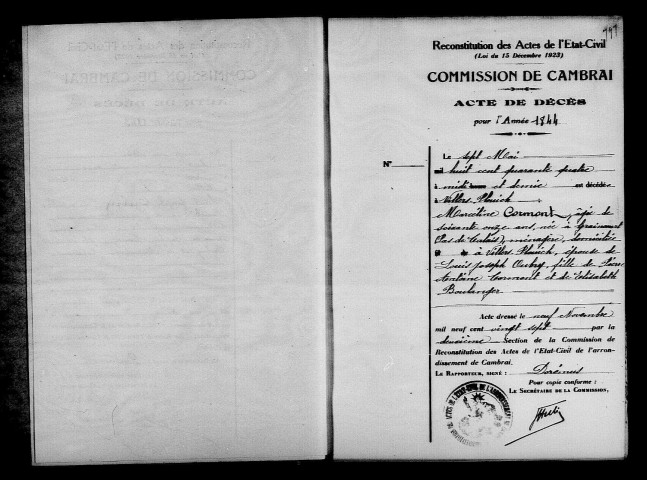 Reconstitution des Actes de l'Etat-Civil
(Loi du 15 Décembre 1923)
COMMISSION DE CAMBRAI
ACTE DE DÉCÈS
pour l'Année 1844
N°
Le sept Mai
mil huit cent quarante quatre
à midi et demie est décédée
à Villers-Plouich
Marcéline Cormont, âgée de
soixante onze ans, née à Graincourt
(Pas de Calais), ménagère, domiciliée
à Villers-Plouich, épouse de
Louis Joseph fille de
Antoine Cormont et de Elisabeth
Boulanger
Acte dressé le neuf Novembre
mil neuf cent vingt sept par la
deuxième Section de la Commission de
Reconstitution des Actes de l'Etat-Civil de l'arron-
dissement de Cambrai.
LE RAPPORTEUR, SIGNÉ : Dorémus
Pour copie conforme :
LE SECRÉTAIRE DE LA COMMISSION,